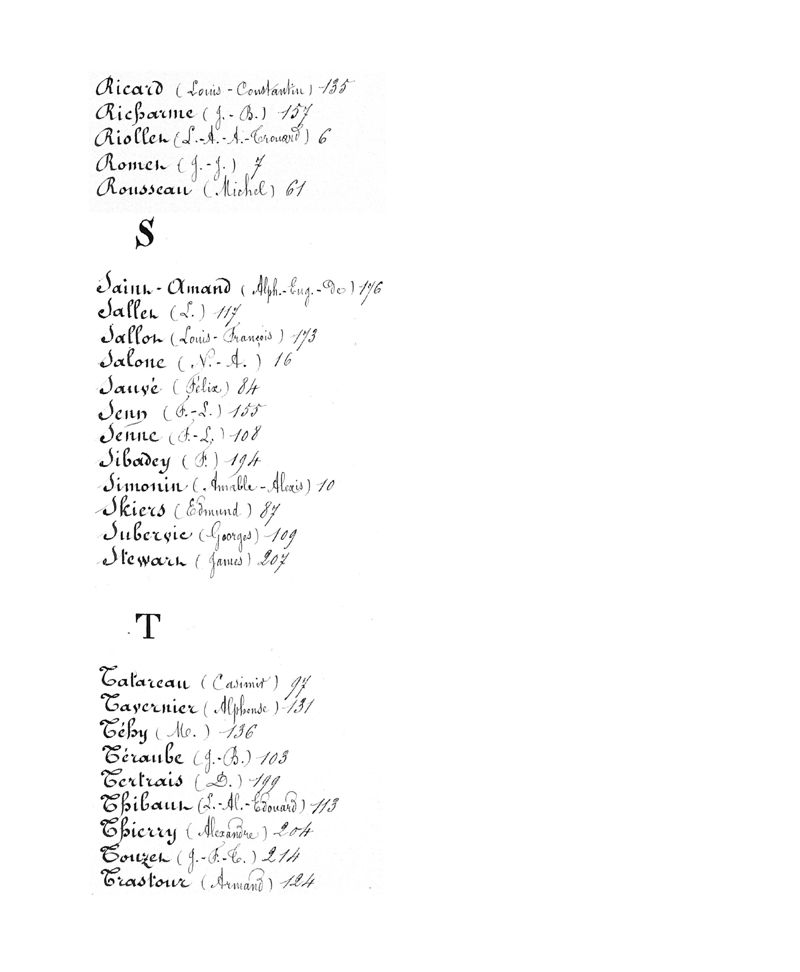 Ricard (Louis-Constantin) 135
Richarme (J.-B.) 157
Riollet (L.-A.-A.-Trouard) 6
Romet (J.-J.) 7
Rousseau (Michel) 61
S
Saint-Amand (Alph.-Eug.-De) 176
Sallet (L.) 117
Sallot (Louis-François) 173
Salone (N.-A.) 16
Sauvé (Félix) 84
Senn (F.-L.) 155
Senne (F.-L.) 108
Sibadey (P.) 194
Simonin (Amable-Alexis) 10
Skiers (Edmund) 87
Subervie (Georges) 109
Stewart (James) 207
T
Tatareau (Casimir) 97
Tavernier (Alphonse) 131
Téhy (M.) 136
Téraube (J.-B.) 103
Tertrais (D.) 199
Thibaut (L.-Al.-Edouard) 113
Thierry (Alexandre) 204
Touzet (J.-F.-T.) 214
Trastour (Armand) 124